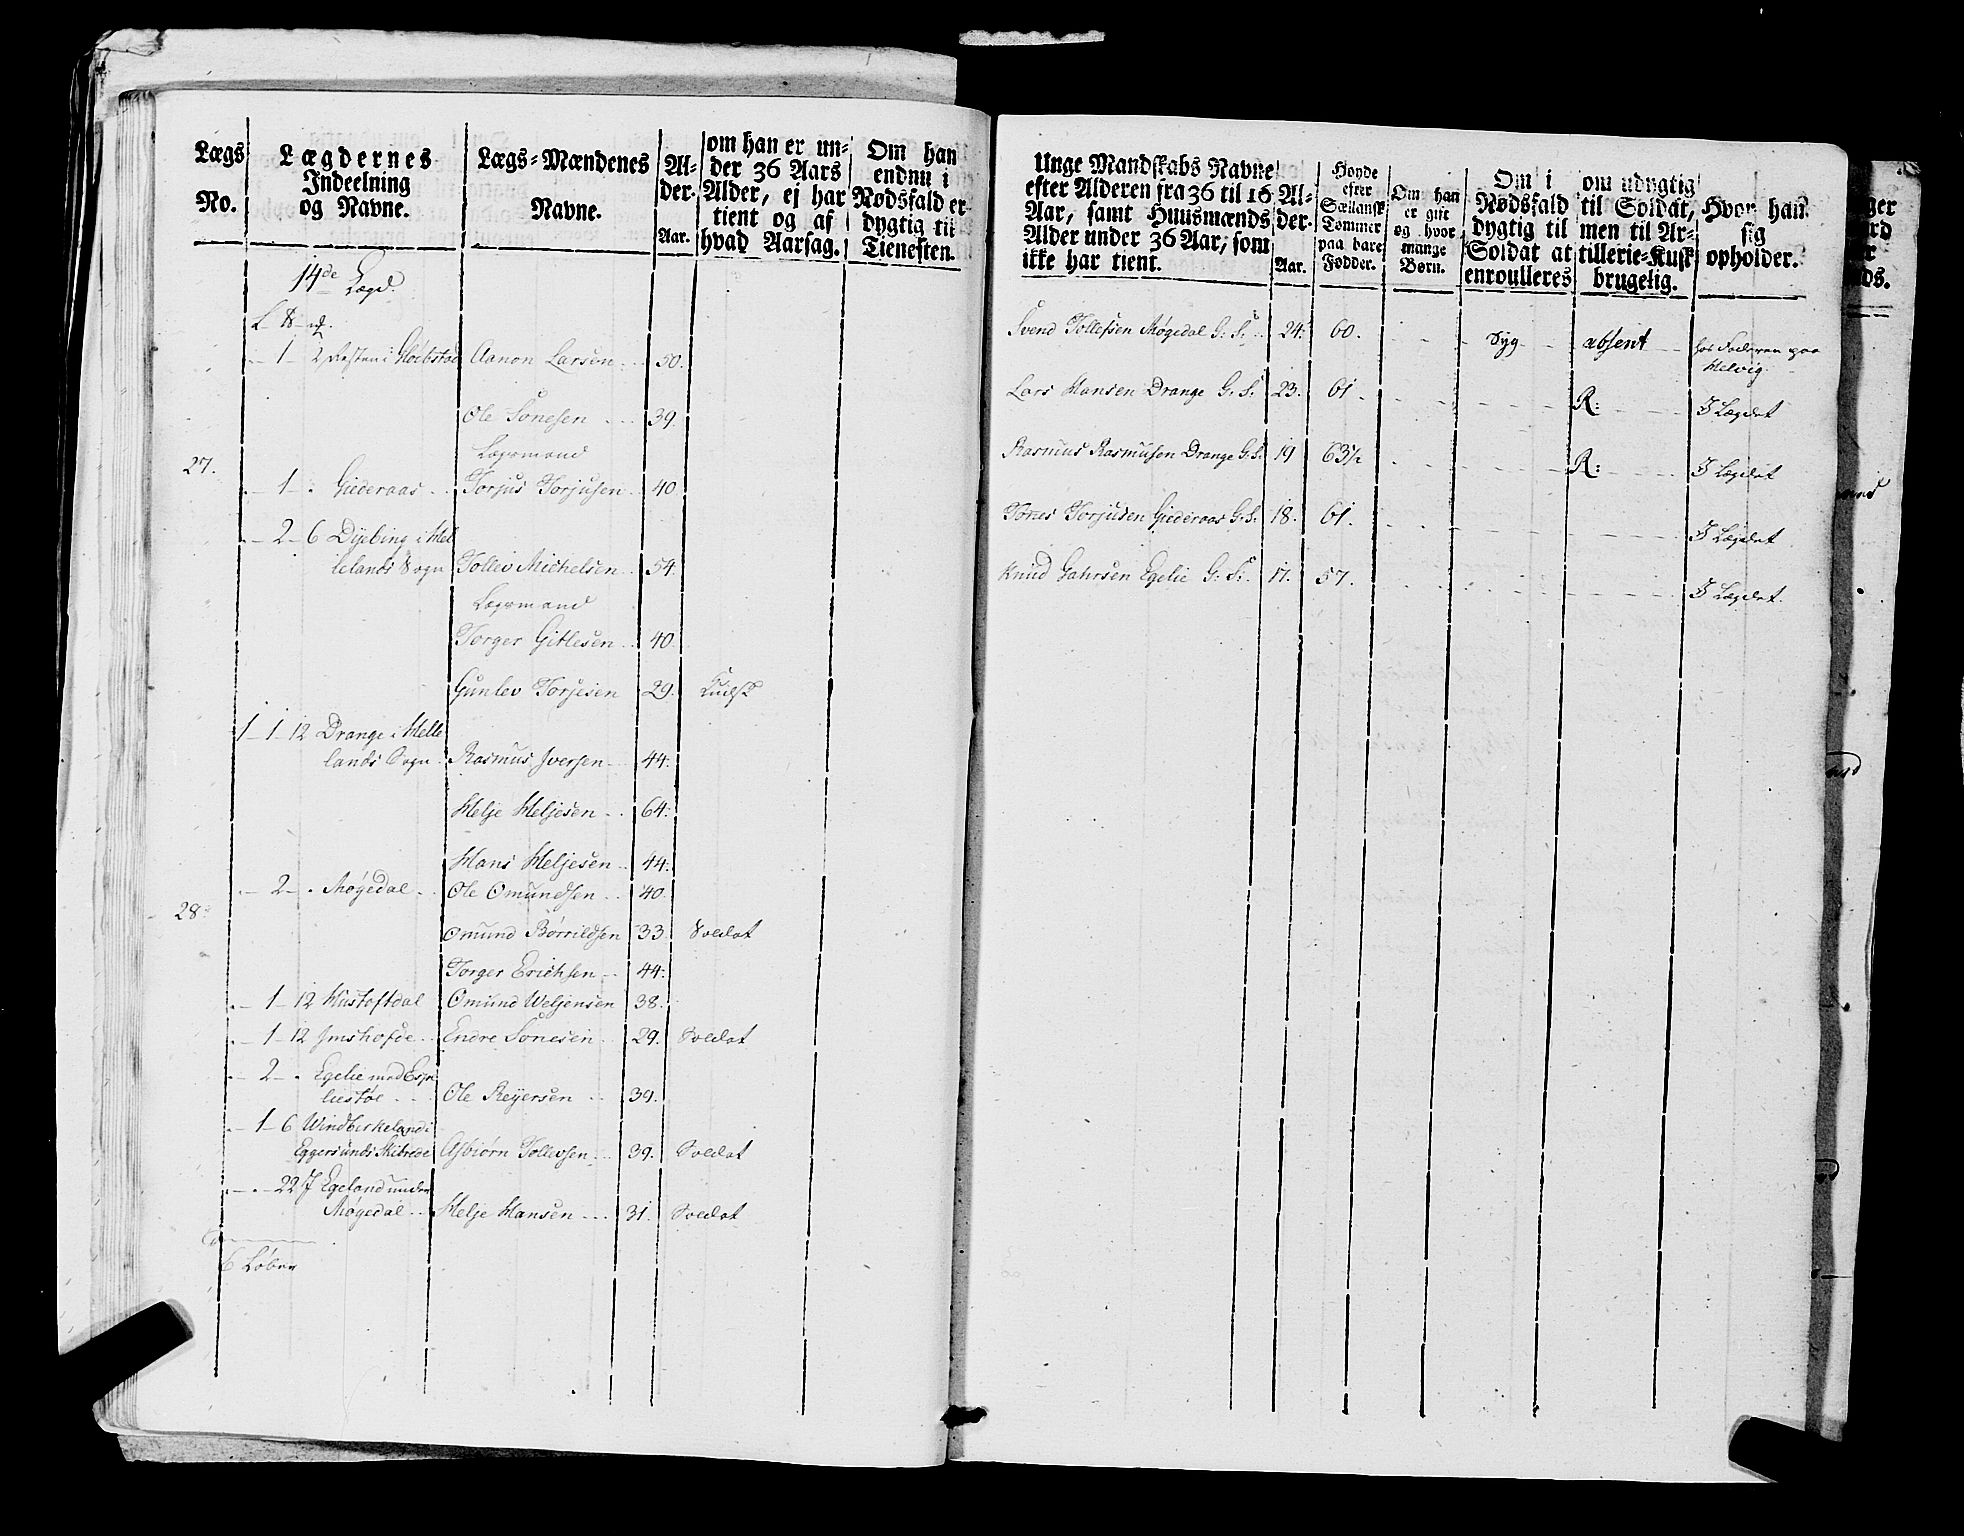 Lægs No.
Lægdernes Indeelning og Navne.
Lægs-Mændenes Navne.
Al-der. Aar.
om han er un-
der 36 Aars
Alder, ej har
tient og af
hvad Aarsag.
Om han
endnu i
Nødsfald er
dygtig til
Tienesten.
14de Lægd.
1 Resten i Aanon Larsen 50.
Ole Tønesen 39.
Lægsmand
27.
1 Giederaas Torjus Torjusen 40
2 6 Dyebing i Hel
lelands Sogn Tollev Michelsen 54.
Lægsmand
Torger Gitlesen 40.
Gunlev Torjesen 29.
1 1 12 Drange i Helle
lands Sogn Rasmus Iversen 44.
Helje Heljesen 64.
Hans Heljesen 44.
2 Møgedal Ole Omundsen 40.
28.
Omund Børrildsen 33. Soldat
Torger Erichsen 44.
1 12 Hustoftdal Omund Weljensen 38.
1 12 Imshofde Endre Tønesen 29. Soldat
2 Egelie med Espe
liestøe Ole Reyersen 39.
1 6 Windberkeland i
Eggersunds Skibrede Asbiørn Tollevsen 39. Soldat
22 1/2 Egeland under
Møgedal Helje Hansen 31. Soldat
6 Løber
Unge Mandskabs Navne
efter Alderen fra 36 til 16
Aar, samt Huusmænds
Alder under 36 Aar, som
ikke har tient.
Al-der. Aar.
Høyde
efter
Sællansk
Tommer
paa bare
Fødder.
Om han
er gift
og hvor
mange
Børn.
Om i
Nødsfald
dygtig til
Soldat at
enroulleres
om udygtig
til Soldat,
men til Ar-
tillerie-Kusk
brugelig.
Hvor han
sig
opholder.
Svend Tollefsen Møgedal G. S. 24. 60. Syg absent hos Faderen paa
Helvig.
Lars Hansen Drange G. S. 23. 61. R: I Lægdet
Rasmus Rasmusen Drange G. S. 19 63 1/2 R: I Lægdet
Tønes Torjusen Giederaas G. S. 18. 61. I Lægdet
Knud Gahrsen Egelie G. S. 17. 57. I Lægdet.